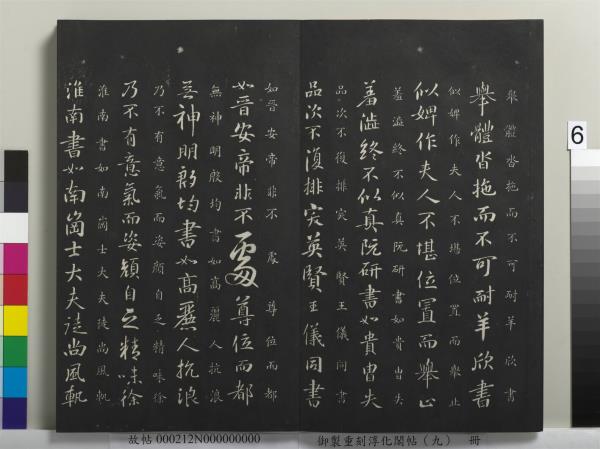 舉體沓拖而不可耐羊欣書
舉體沓拖而不可耐羊欣書
似婢作夫人不堪位置而舉止
似婢作夫人不堪位置而舉止
羞澁終不似真阮研書如貴胄失
羞澁終不似真阮研書如貴胄失
品次不復排突英賢王儀同書
品次不復排突英賢王儀同書
如晉安帝非不處尊位而都
如晉安帝非不處尊位而都
無神明殷均書如高麗人抗浪
无神明殷均書如高麗人抗浪
乃不有意氣而姿顔自乏精味徐
乃不有意氣而姿顔自乏精味徐
淮南書如南崗士大夫徒尚風軌
淮南書如南崗士大夫徒尚風軌
6
故帖 000212N000000000 御製重刻淳化閣帖（九） 冊